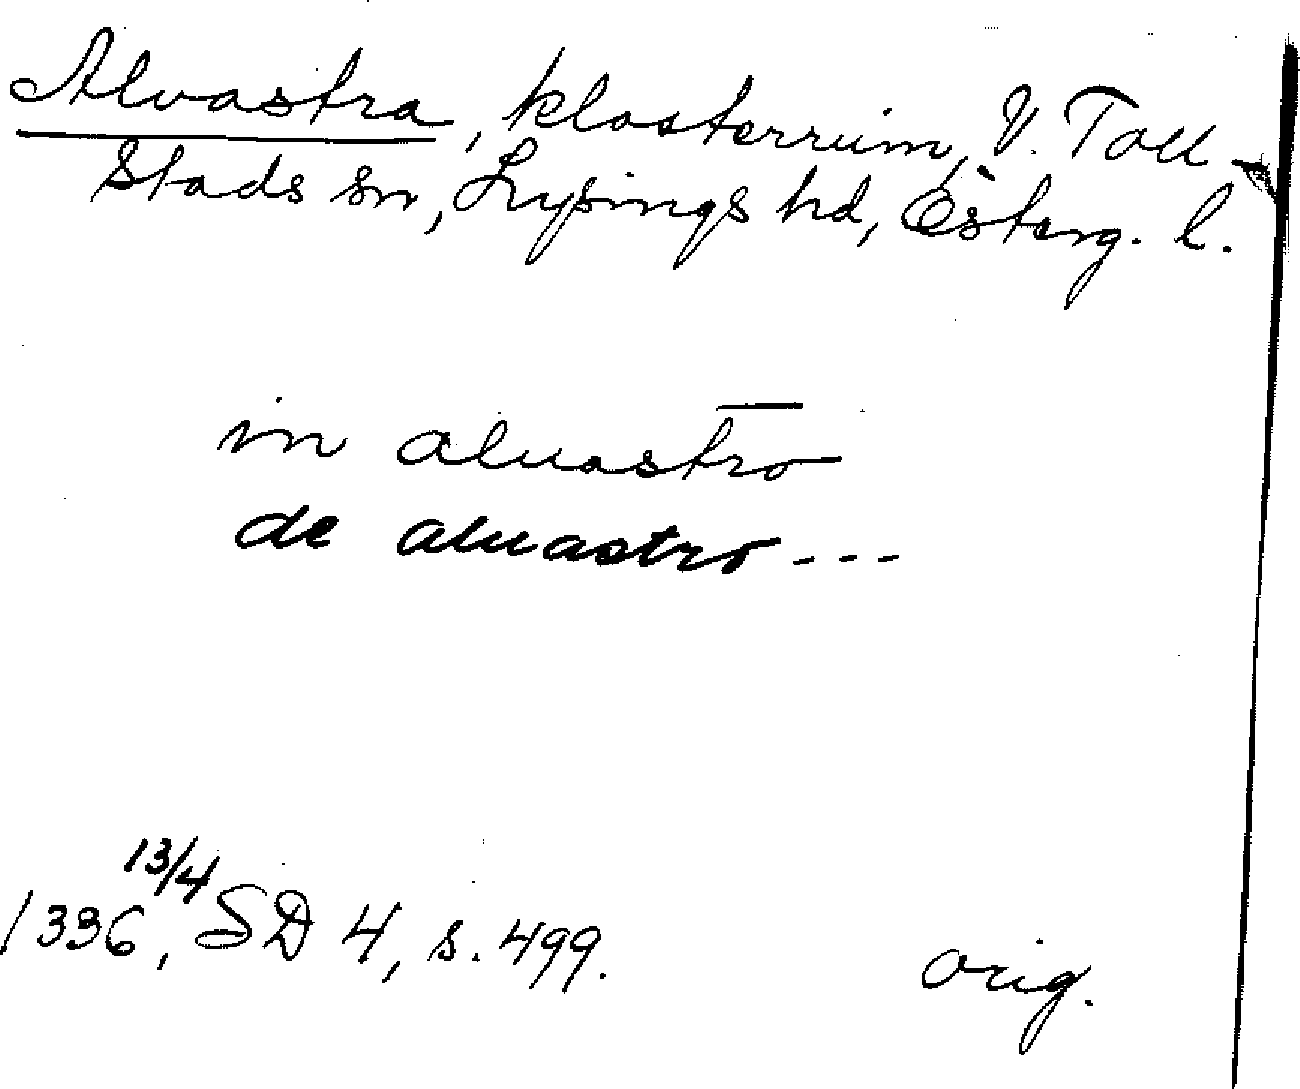 Alvastra, klosterruin, V. Toll-
stads sn, Lysings hd, Österg. l.
in aluastro
de aluastro---
1336 13/4, SD 4, s. 499. orig.